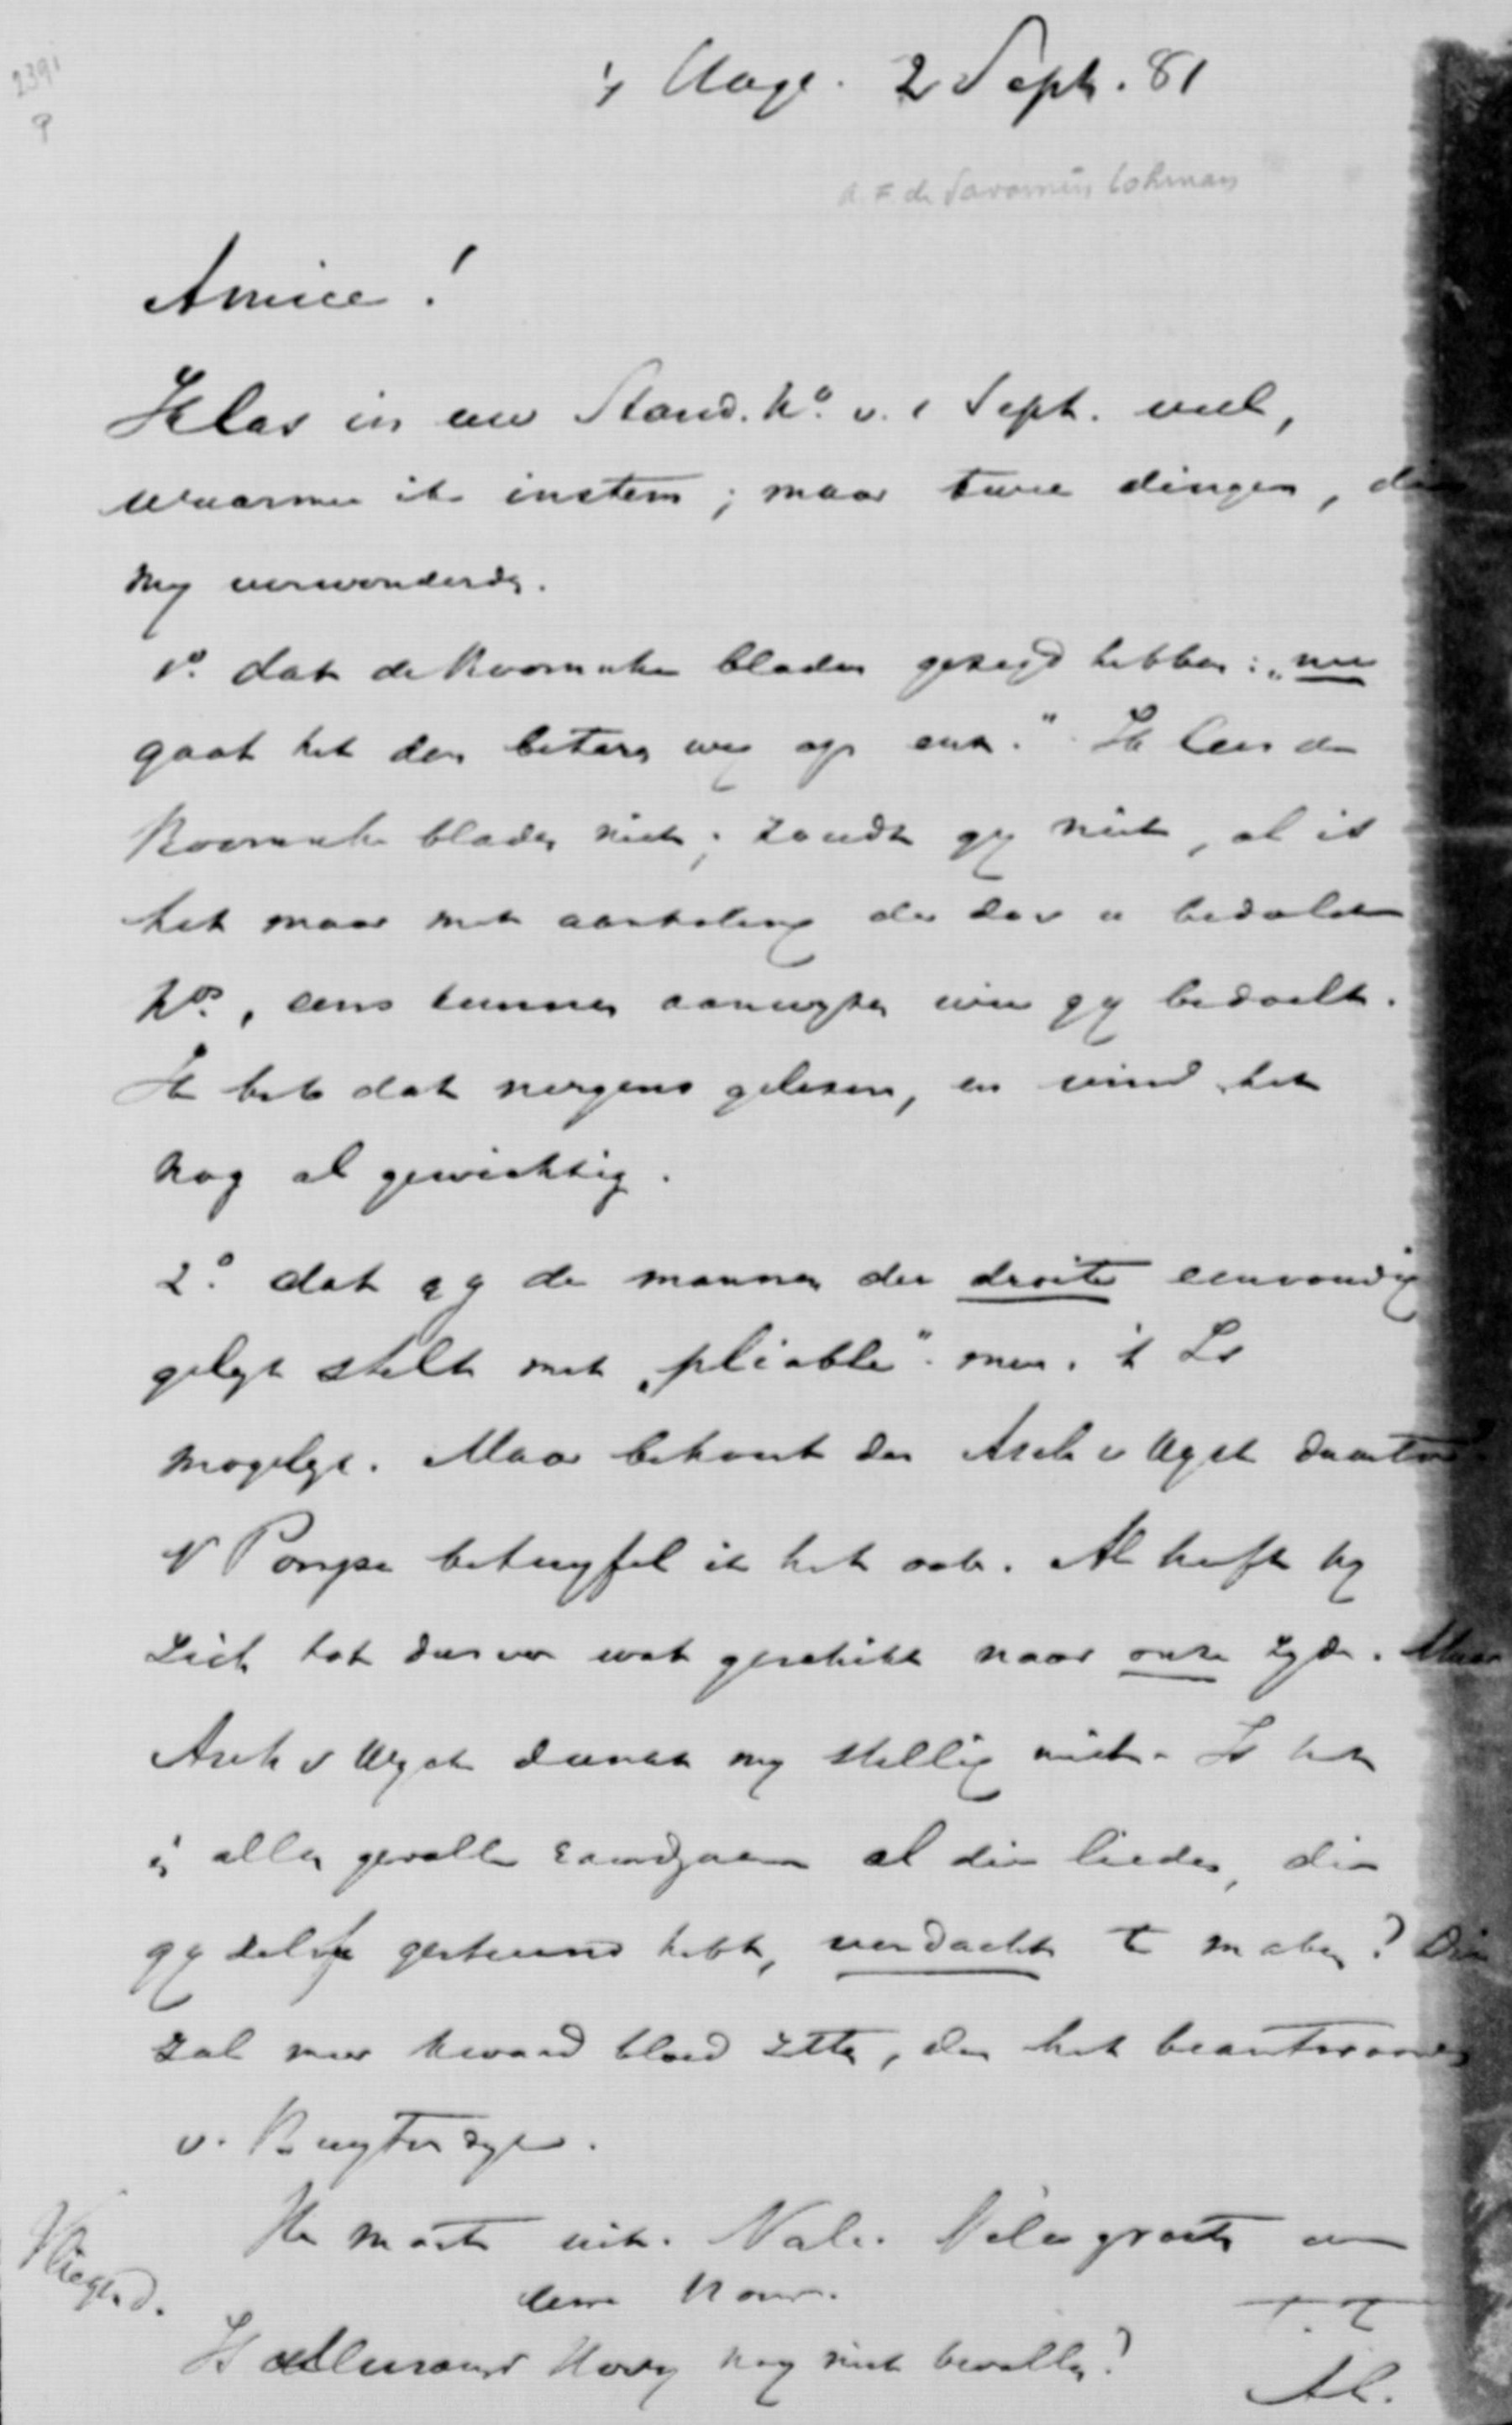 2391
's Hage. 2 Sept. 81
A. F. de Savornin Lohman
Amice!
Ik las in uw Stand. No. v. 1 Sept. veel,
waarmee ik instem; maar twee dingen, die
my verwonderden.
1o. dat de Roomsche bladen gezegd hebben: „nu
gaat het den beteren weg op enz." Ik lees de
Roomsche bladen niet; zoudt gy niet, al is
het maar met aanhaling der door u bedoelde
Nos., eens kunnen aanwyzen wie gy bedoelt.
Ik heb dat nergens gelezen, en vind het
nog al gewichtig.
2o. dat gy de mannen der droite eenvoudig
gelyk stelt met „pliable" men. 't Is
mogelyk. Maar behoort den Asch v Wyck daartoe.
V Pompe betwyfel ik het ook. Al heeft hy
zich tot dusver wat geschikt naar onze zyde. Maar
Asch v Wyck dunkt my stellig niet. Is het
in allen gevalle raadzaam al die lieden, die
gy zelf gesteund hebt, verdacht te maken? Dit
zal meer kwaad bloed zetten, dan het beantwoorden
v. Kuyter dyk.
Ik moet uit. Vale. Vele groeten aan
Uwe Vrouw.
T.T.
Is Hovy nog niet bevallen?
AL.